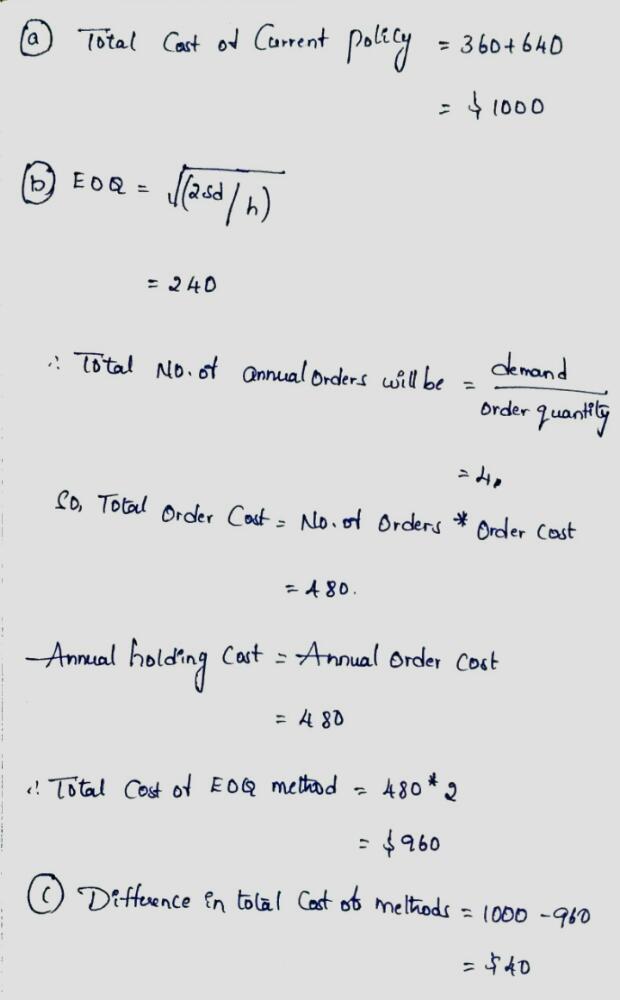 (a) Total Cost of Current policy = 360+640
= $ 1000
(b) EOQ = √(2sd/h)
= 240
∴ Total No. of annual orders will be = demand / order quantity
= 4.
So, Total Order Cost = No. of Orders * Order Cost
= 480.
Annual holding Cost = Annual Order Cost
= 480
∴ Total Cost of EOQ method = 480*2
= $960
(c) Difference in total Cost of methods = 1000 - 960
= $40